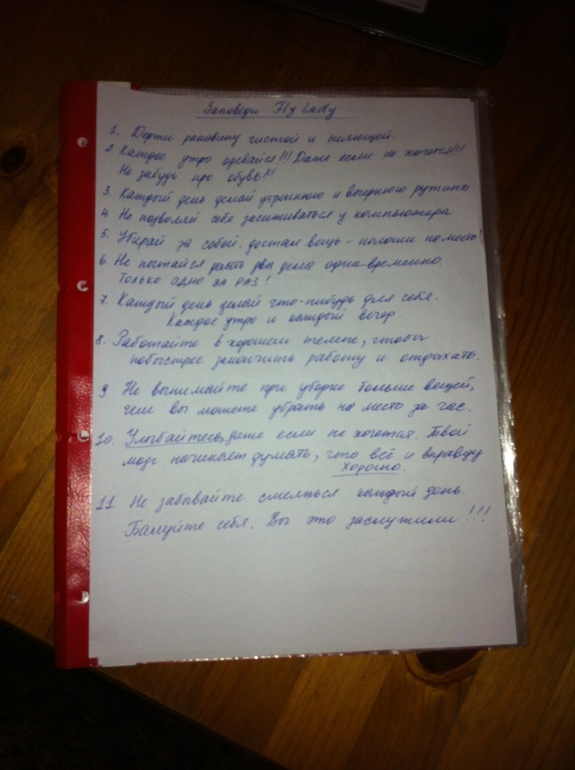 Заповеди Fly Lady
1. Держи раковину чистой и сияющей.
2. Каждое утро одевайся!!! Даже если не хочется!!!
Не забудь про обувь!!!
3. Каждый день делай утреннюю и вечернюю рутины
4. Не позволяй себе засиживаться у компьютера
5. Убирай за собой. достал вещь - положи на место!
6. Не пытайся делать два дела одно-временно.
Только одно за РАЗ!
7. Каждый день делай что-нибудь для себя.
Каждое утро и каждый вечер.
8. Работайте в хорошем темпе, чтобы
побыстрее закончить работу и отдыхать.
9 Не вынимайте при уборке больше вещей,
чем вы можете убрать на место за час.
10. Улыбайтесь, даже если не хочется. Твой
мозг начинает думать, что всё и вправду
хорошо.
11 Не забывайте смеяться каждый день.
Балуйте себя. Вы это заслужили!!!